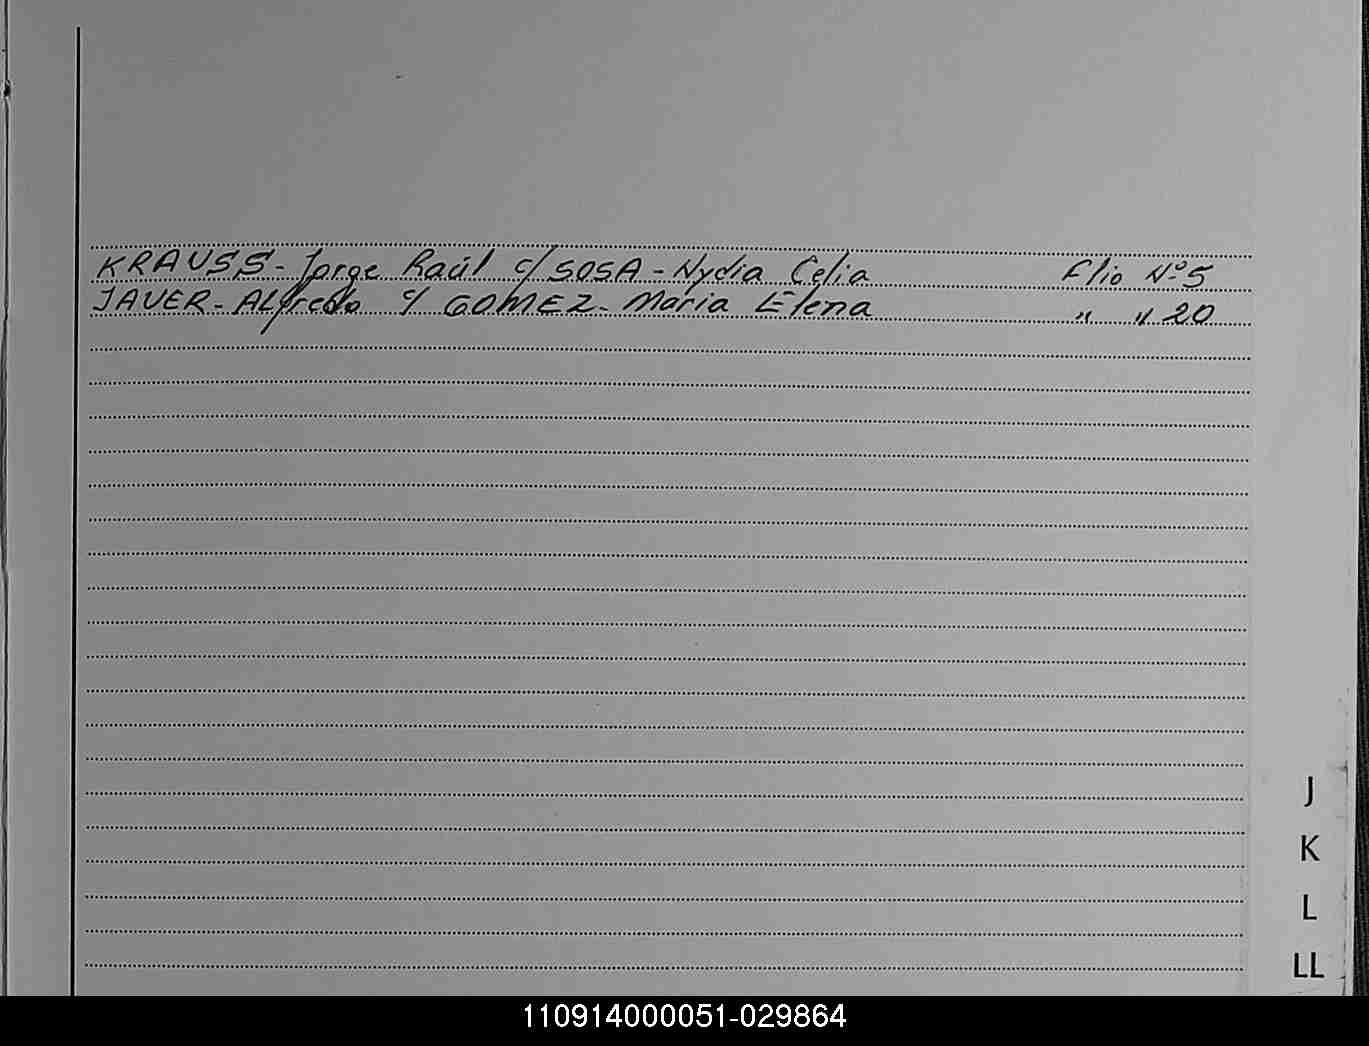 KRAUSS - Jorge Raúl c/ SOSA - Nydia Celia Flio Nº 5
JAUER - ALfredo c/ GOMEZ - Maria Elena " " 20
J
K
L
LL
110914000051-029864